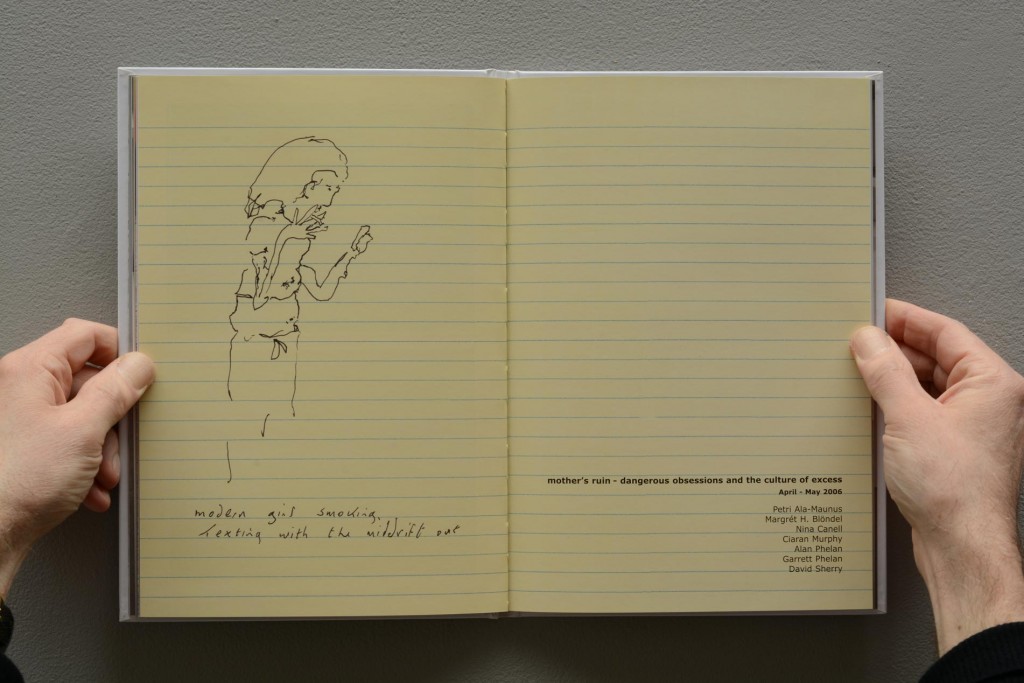 modern girl smoking,
texting with the midriff out
mother's ruin - dangerous obsessions and the culture of excess
April - May 2006
Petri Ala-Maunus
Margrét H. Blöndel
Nina Canell
Ciaran Murphy
Alan Phelan
Garrett Phelan
David Sherry